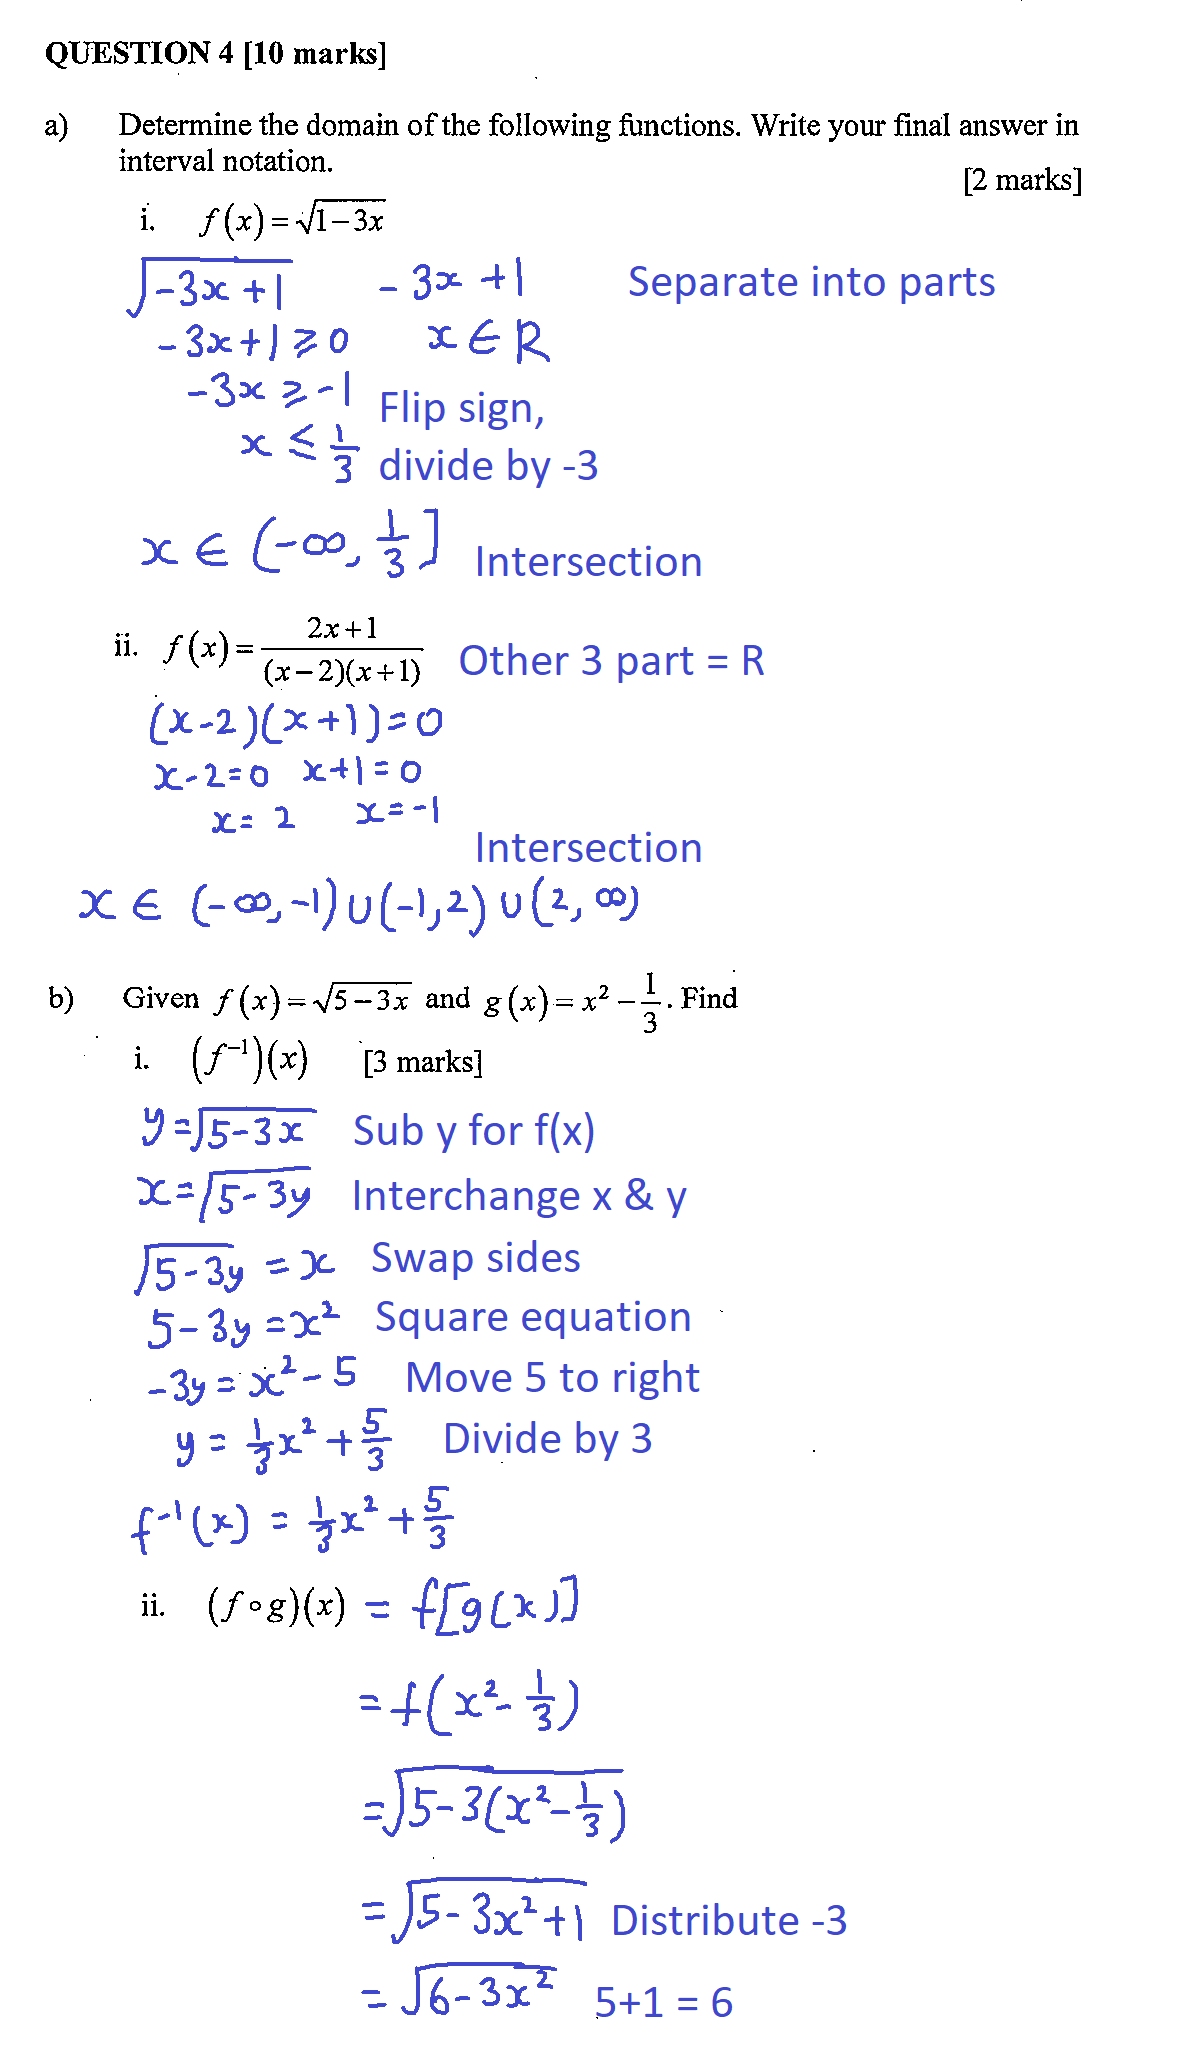 QUESTION 4 [10 marks]
a) Determine the domain of the following functions. Write your final answer in
interval notation.
[2 marks]
i. f(x)=√(1−3x)
√(-3x+1) -3x+1 Separate into parts
-3x+1⩾0 x∈R
-3x⩾-1 Flip sign,
x≤1/3 divide by -3
x∈(-∞,1/3] Intersection
ii. f(x)=(2x+1)/((x−2)(x+1)) Other 3 part = R
(x-2)(x+1)=0
x-2=0 x+1=0
x=2 x=-1
Intersection
x∈(-∞,-1)∪(-1,2)∪(2,∞)
b) Given f(x)=√(5−3x) and g(x)=x²−1/3. Find
i. (f⁻¹)(x) [3 marks]
y=√(5-3x) Sub y for f(x)
x=√(5-3y) Interchange x & y
√(5-3y)=x Swap sides
5-3y=x² Square equation
-3y=x²-5 Move 5 to right
y=1/3x²+5/3 Divide by 3
f⁻¹(x)=1/3x²+5/3
ii. (f∘g)(x)=f[g(x)]
=f(x²-1/3)
=√(5-3(x²-1/3))
=√(5-3x²+1) Distribute -3
=√(6-3x²) 5+1 = 6